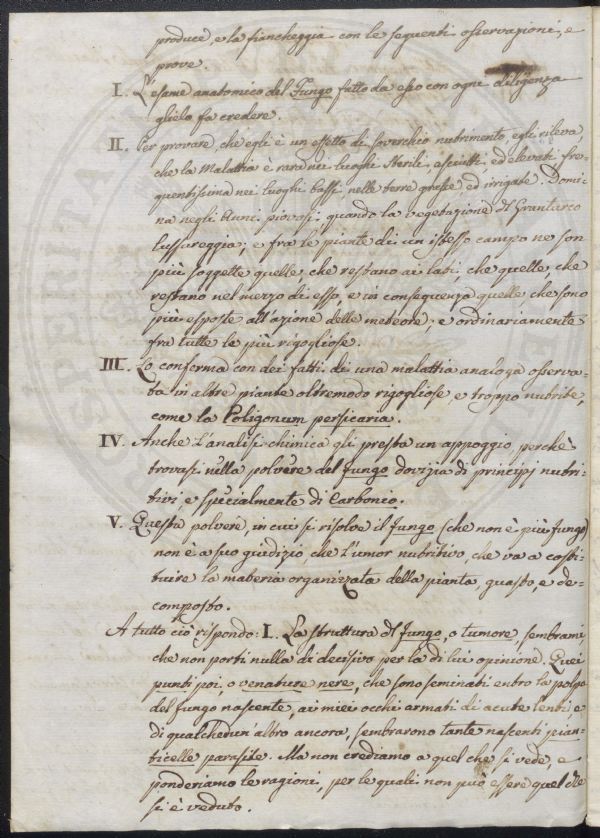 produce, e la fiancheggia con le seguenti osservazioni, e
prove.
I. L'esame anatomico del Fungo fatto da esso con ogni diligenza
glielo fa credere.
II. Per provare, che egli è un effetto di soverchio nutrimento, egli rileva,
che la Malattia è rara nei luoghi sterili, asciutti, ed elevati fre-
quentissima nei luoghi bassi nelle terre grasse ed irrigate. Domi-
na negli anni piovosi quando la vegetazione del Granturco
lussureggia; e fra le piante di un istesso campo ne son
più soggette quelle che restano ai lati, che quelle, che
restano nel mezzo di esso, e in conseguenza quelle che sono
più esposte all'azione delle meteore; e ordinariamente
fra tutte le più rigogliose.
III. Lo conferma con dei fatti di una malattia analoga osserva-
ta in altre piante oltremodo rigogliose, e troppo nutrite,
come la Poligonum persicaria.
IV. Anche l'analisi chimica gli presta un appoggio, perchè
trovasi nella polvere del fungo dovizia di principj nutri-
tivi e specialmente di Carbonio.
V. Questa polvere, in cui si risolve il fungo (che non è più fungo)
non è a suo giudizio, che l'umor nutritivo, che va a costi-
tuire la materia organizzata della pianta, guasto, e de-
composto.
A tutto ciò rispondo: I. La struttura del fungo, o tumore, sembrami
che non porti nulla di decisivo per la di lui opinione. Quei
punti poi, o venature nere, che sono seminati entro la polpa
del fungo nascente, ai miei occhi armati di acute lenti, e
di qualchedun'altro ancora, sembrarono tante nascenti pian-
ticelle parasite. Ma non crediamo a quel che si vede, e
ponderiamo le ragioni, per le quali non può essere quel che
si è veduto.